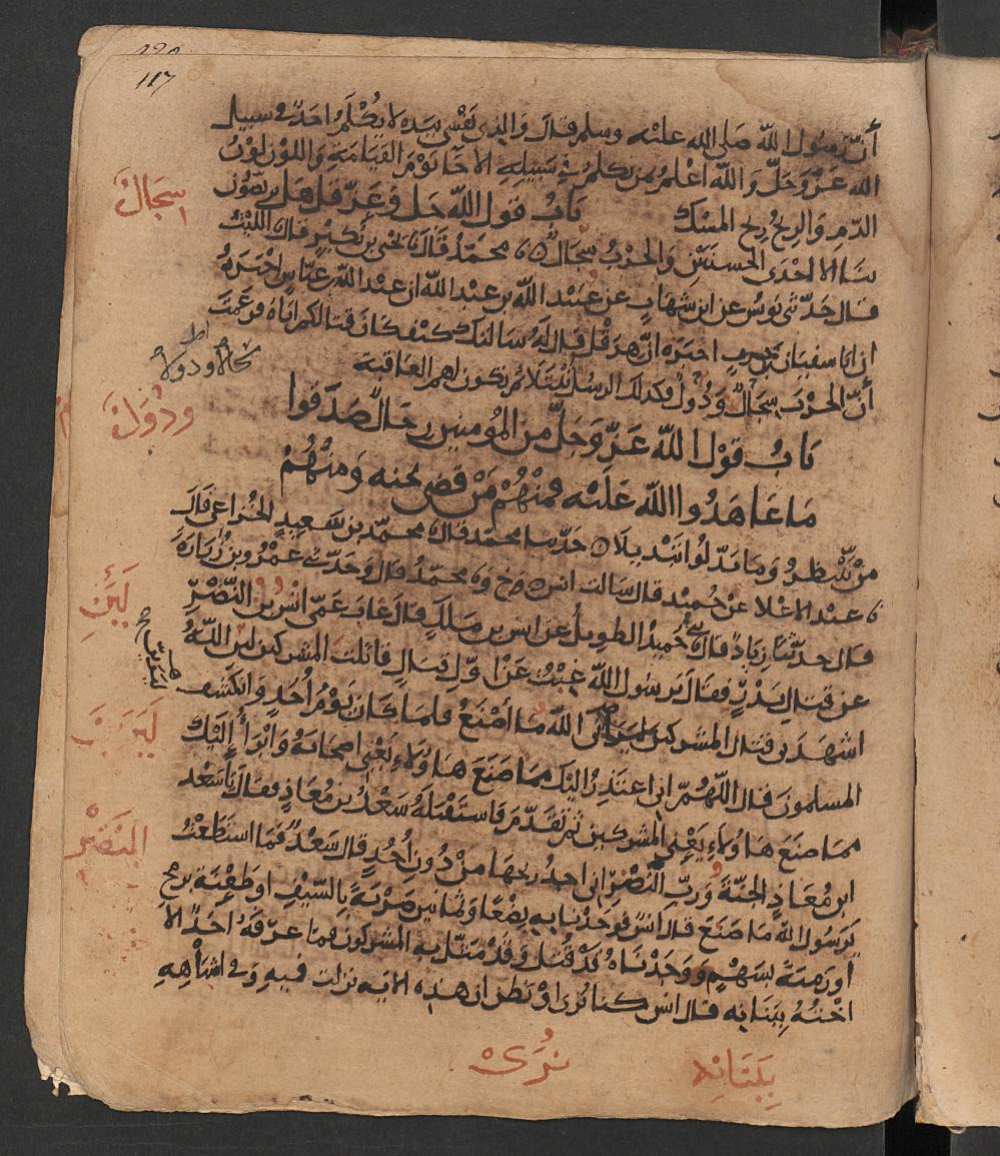 117
أن رسول الله صلى الله عليه وسلم قال والذي نفسي بيده لا يكلم احد في سبيل
الله عز وجل والله اعلم بمن يكلم في سبيله الا جا يوم القيامة واللون لون
الدم والريح ريح المسك باب قول الله جل وعز قل هل تربصون
بنا الا احدى الحسنيين والحرب سجال محمد قال يحيى بن بكير قال الليث
قال حدثني يونس عن ابن شهاب عن عبيد الله بن عبد الله ان عبد الله بن عباس اخبره
ان ابا سفيان بن حرب اخبره ان هرقل قال له سالتك كيف كان قتالكم اياه فزعمت
أن الحرب سجال ودول وكذلك الرسل تبتلا ثم تكون لهم العاقبة
باب قول الله عز وجل من المومنين رجال صدقوا
ما عاهدوا الله عليه فمنهم من قضى نحبه ومنهم
من ينتظر وما بدلوا تبديلا حدثنا محمد قال محمد بن سعيد الخزاعي قال
عبد الاعلا عن حميد قال سالت انس ح و محمد قال وحدثني عمرو بن زرارة
قال حدثنا زياد قال حميد الطويل عن انس بن ملك قال غاب عمي انس بن النضر
عن قتال بدر فقال يرسول الله غبت عن اول قتال قاتلت المشركين لين الله
اشهدني قتال المشركين ليرين الله ما اصنع فلما كان يوم أحد وانكشف
المسلمون قال اللهم اني اعتذر اليك مما صنع هاولاء يعني اصحابه وابرأ إليك
مما صنع هاولاء يعني المشركين ثم تقدم فاستقبله سعد بن معاذ فقال يا سعد
ابن معاذ الجنة ورب النضر اني اجد ريحها من دون أحد قال سعد فما استطعت
يرسول الله ما صنع قال انس فوجدنا به بضعا وثمانين ضربة بالسيف او طعنة برمح
او رمية بسهم ووجدناه قد قتل وقد مثل به المشركون فما عرفه احد الا
اخته ببنانه قال انس كنا نرى او نظن ان هذه الاية نزلت فيه وفي اشباهه
سجال
ودول
لين
ليرين
النضر
ببنانه
نرى